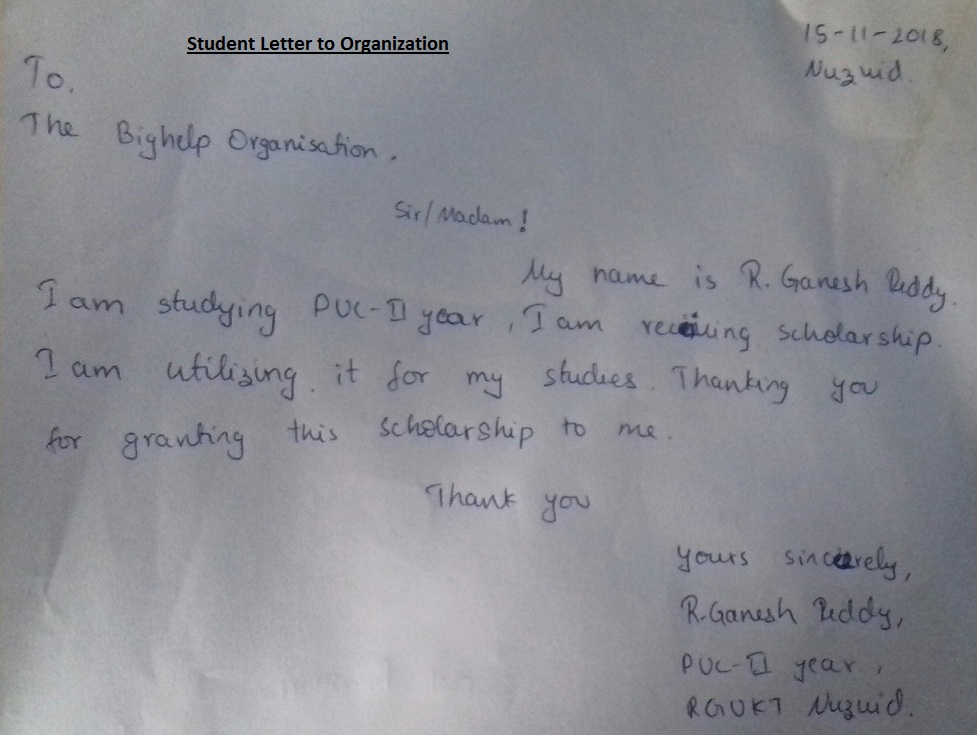 Student Letter to Organization
15-11-2018,
Nuzvid.
To,
The Bighelp Organisation.
Sir/Madam!
My name is R. Ganesh Reddy.
I am studying PUC-II year, I am receiving scholarship.
I am utilizing it for my studies. Thanking you
for granting this scholarship to me.
Thank you
yours sincerely,
R.Ganesh Reddy,
PUC-II year,
RGUKT Nuzvid.